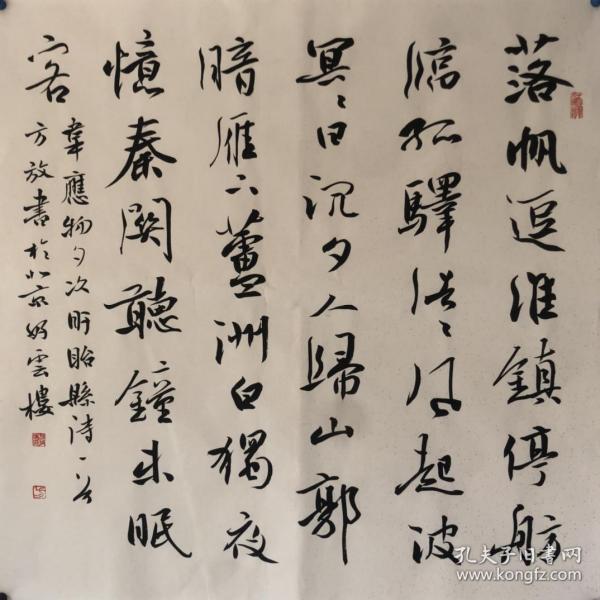 落帆逗淮鎮停舫
臨孤驛浩〻風起波
冥〻日沉夕人歸山郭
暗雁下蘆洲白獨夜
憶秦關聽鐘未眠
客
韋應物夕次盱眙縣詩一首
方放書於北京好雲樓
孔夫子旧书网
www.kongfz.com